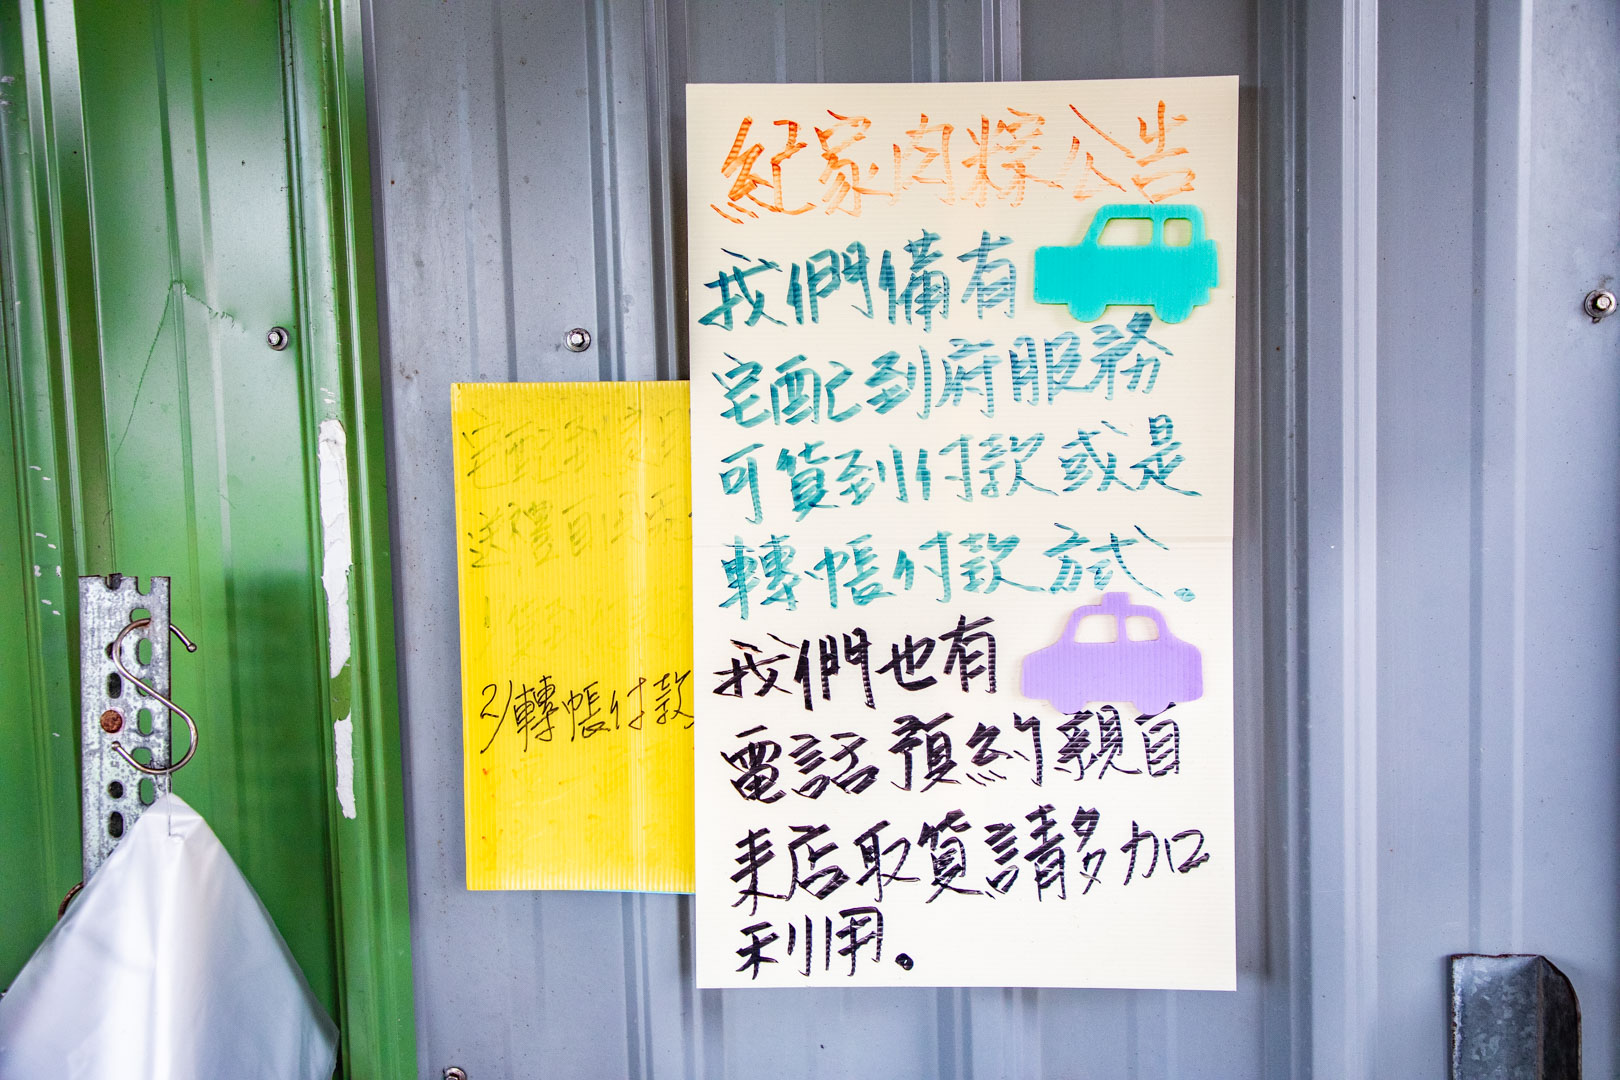 紀家肉粽公告
我們備有
宅配到府服務
可貨到付款或是
轉帳付款方式。
我們也有
電話預約親自
來店取貨請多加
利用。
宅配到
2/轉帳付款